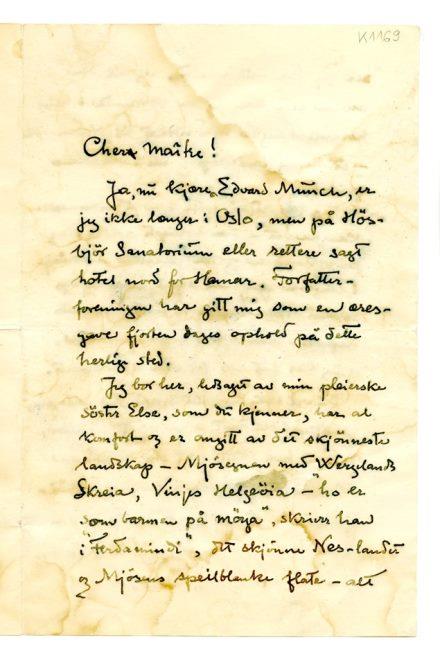 K1169
Chera Maître!
Ja, nu kjære, Edvard Munch, er
jeg ikke længer i Oslo, men på Hös-
björ Sanatorium eller rettere sagt
hotel nord for Hamar. Forfatter-
foreningen har gitt mig som en æres-
gave fjorten dages ophold på dette
herlige sted.
Jeg bor her, ledsaget av min pleierske
söster Else, som du kjenner, har al
komfort og er omgitt av det skjönneste
landskap – Mjösegnen med Wergelands
Skreia, Vinjes Helgeöia – "ho er
som barmen på möya", skriver han
i "Ferdamindi", det skjönne Nes-landet
og Mjösens speilblanke flate – alt